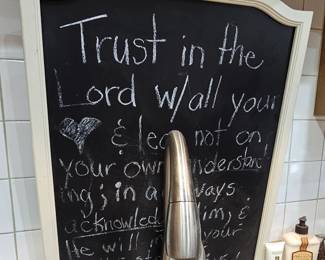 Trust in the
Lord w/ all your
♥ & lean not on
your own understand
ing; in all ways
acknowledge Him, &
He will your